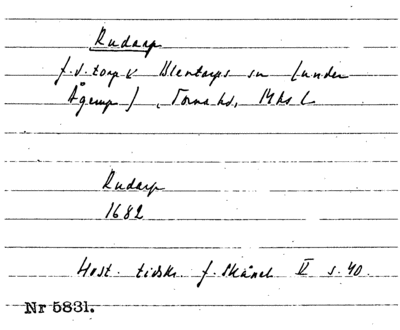 Rudarp
f.d. torp i Blentarps sn (under
Ågerup), Torna hd, Mhs l
Rudarp
1682
Hist. tidskr. f. Skånel V s. 40.
Nr 5831.